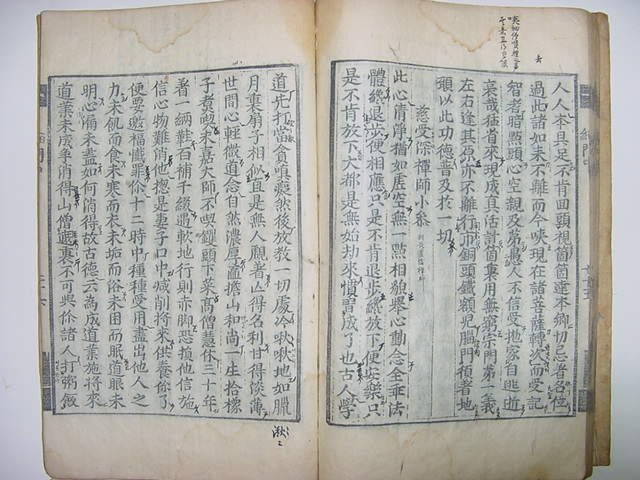 人人本具足不肯回頭視箇箇達本鄉切忌着名位
過此諸如來不離而今㖿現在諸菩薩轉次而受記
智者暗點頭心空親及第愚人不信受抛家自逃逝
哀哉猛省不現成眞活計箇裏用無窮空門第一義
左右逢其原亦不離行市銅頭鐵額兒腦門須着地
頌以此功德普及於一切
慈受深禪師小參
此心清淨猶如虛空無一點相貌擧心動念全乖法
體纔退步便相應只是不肯退步纔放下便安樂只
是不肯放下大都是無始劫來慣習成了也古人學
道先打當貪嗔癡然後放教一切處冷啾啾地如臘
月裏扇子相似直是無人覰著亾得名利甘得淡薄
世間心輕微道念自然濃厚匾擔山和尚一生拾橡
子煮喫永嘉大師不喫钁頭下菜高僧慧休三十年
着一緉鞋百補千綴遇軟地行則赤脚恐損他信施
信心物難消他摠是妻子口中減削將來供養你了
便要邀福懺罪你十二時中種種受用盡出他人之
力未飢而食未寒而衣未垢而浴未困而眠道眼未
明心漏未盡如何消得故古德云爲成道業施將來
道業未成爭消得山僧裏不可與你諸人打粥飯